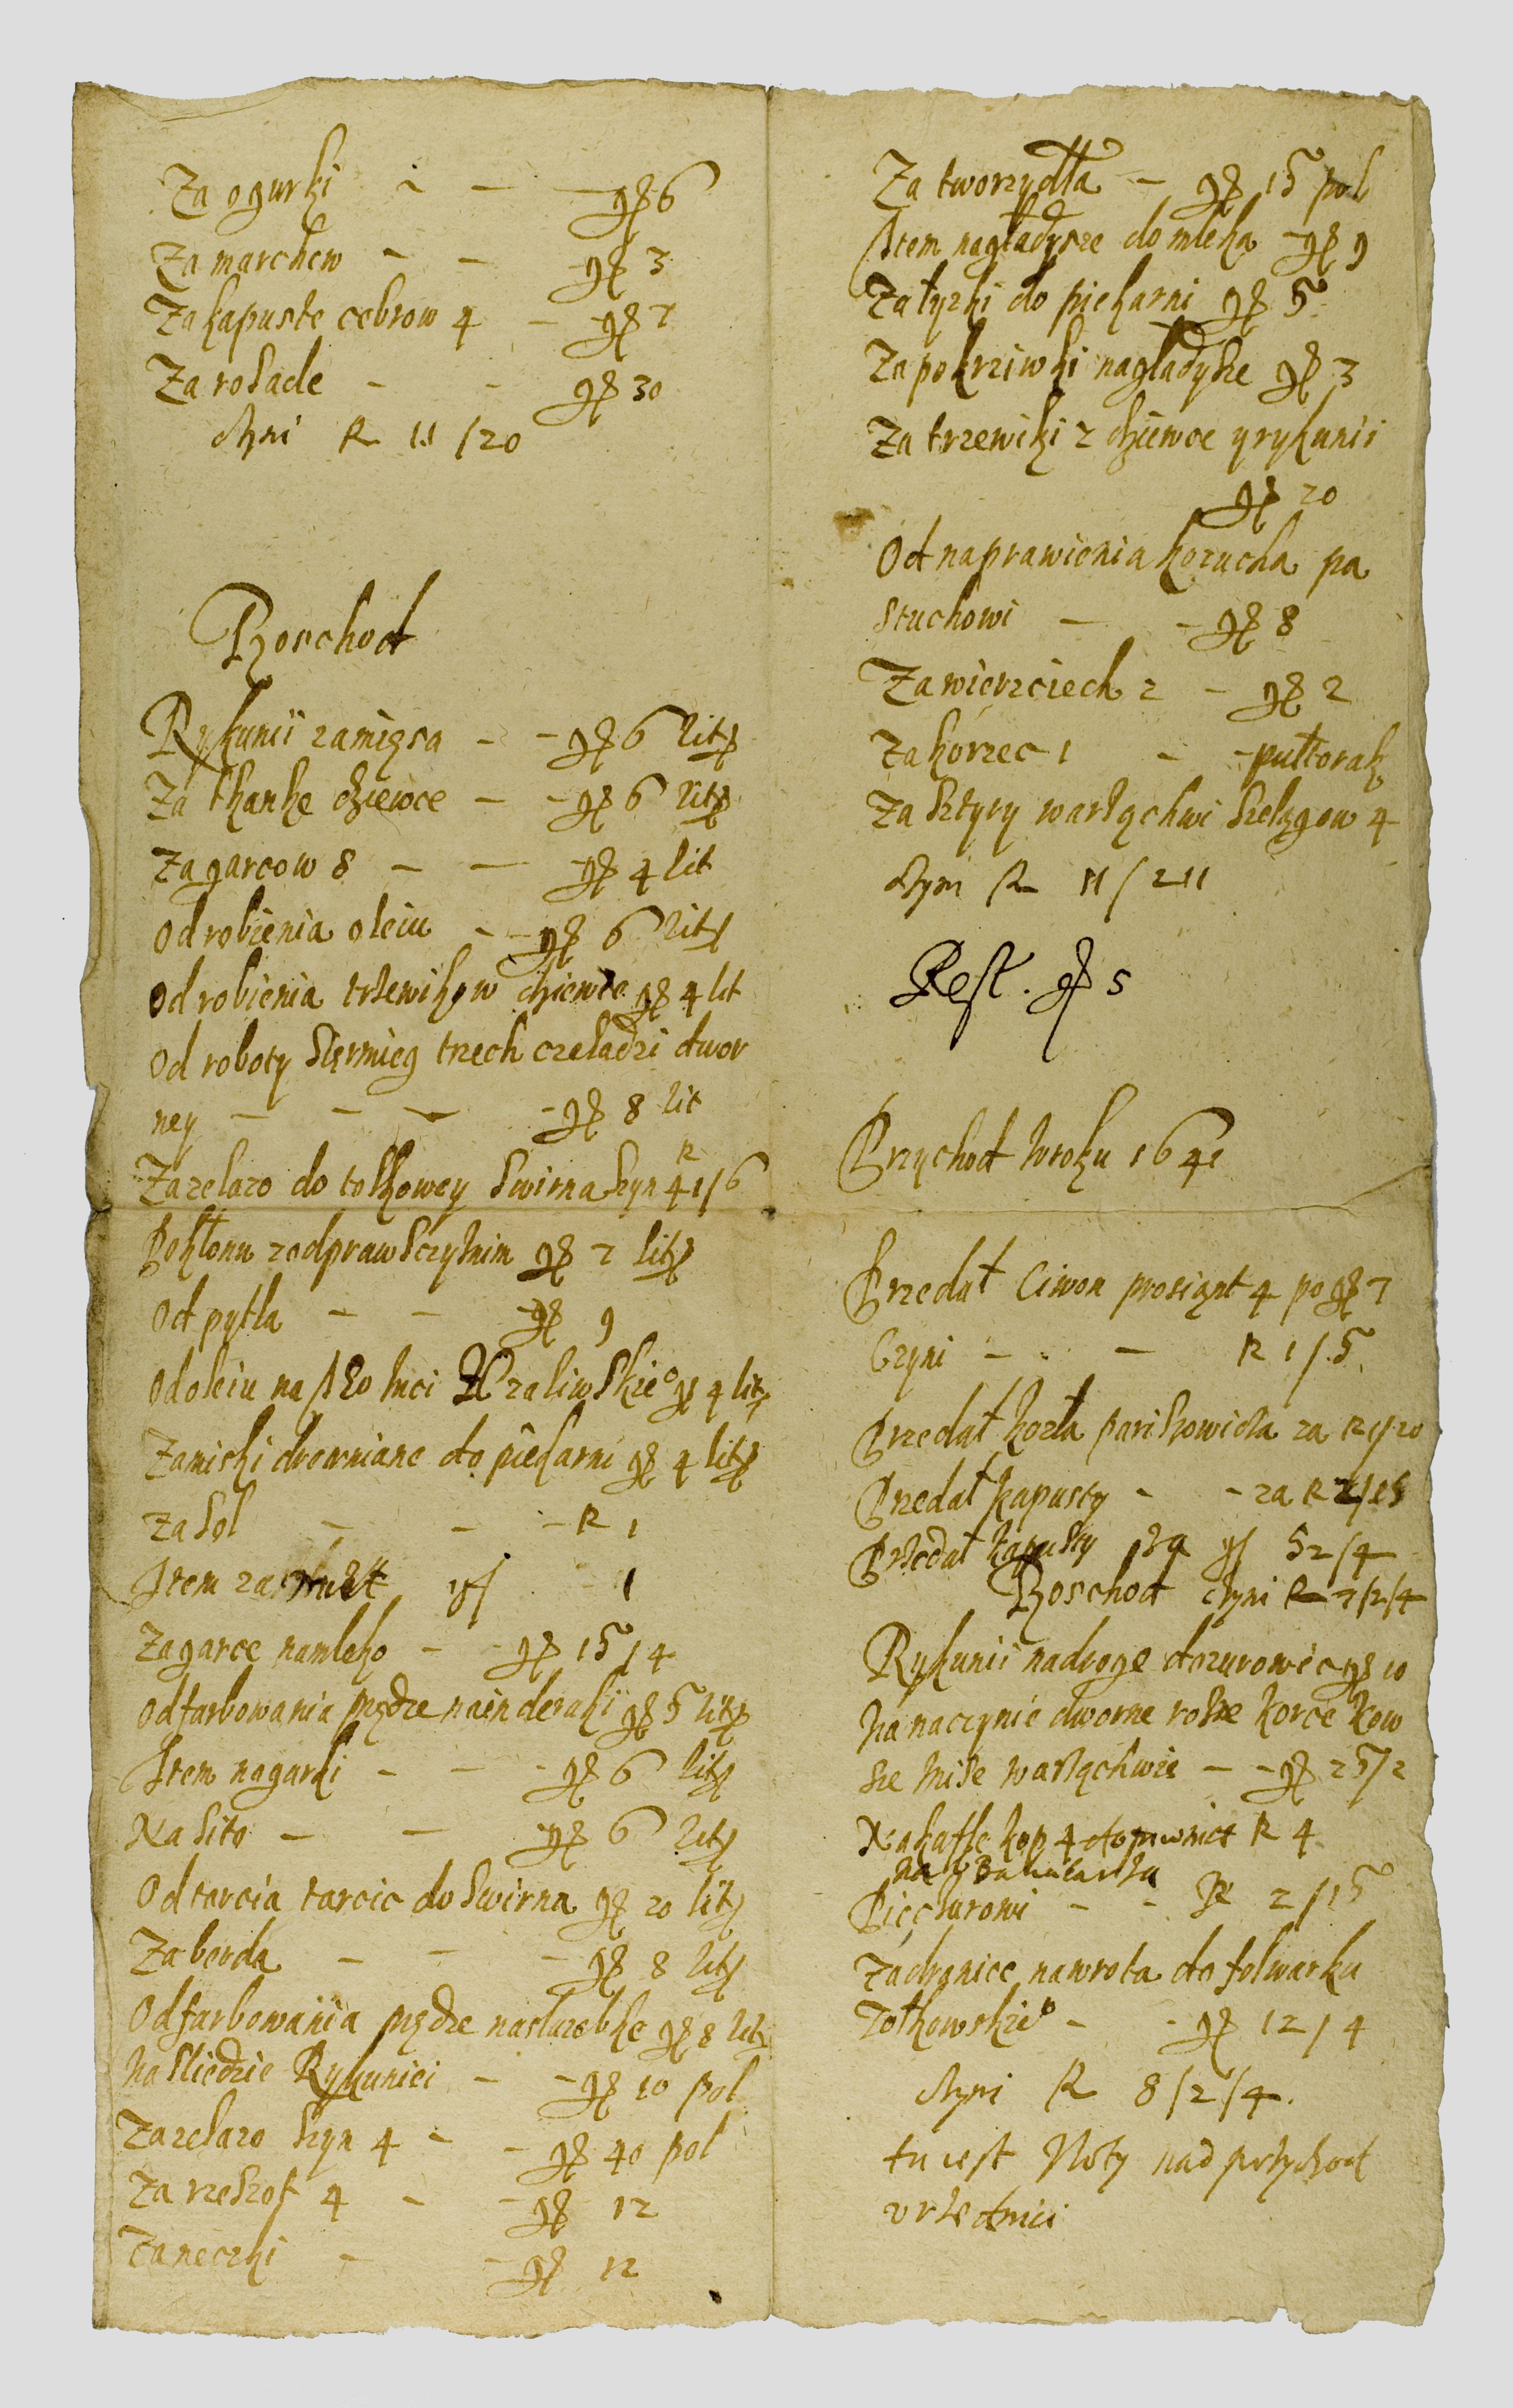 Za ogurki - - - gr 6
Za marchew - - gr 3
Za kapuste cebrow 4 - gr 7
Za rosade - - gr 30
czyni R 11/20
Roschod
Rykunii za mięsa - - gr 6 lit
Za tkanke dziewce - - gr 6 lit
Za garcow 8 - - gr 4 lit
Od robienia oleiu - - gr 6 lit
Od robienia trzewikow dziewce gr 4 lit
Od roboty siermięg trzech czeladzi dwor
ney - - - - gr 8 lit
Za zelazo do tolkowey swirna szyn 4 R 1/6
Pokłonu z odpraw gr 7 lit
Od pytla - - gr 9
Od oleiu na gr 4 lit
Za miski drewniane do piekarni gr 4 lit
Za sol - - - R 1
Item za gr - 1
Za garce na mleko - - gr 15/4
Od farbowania przędze na inderaki gr 5 lit
Item na garki - - - gr 6 lit
Na sito - - gr 6 lit
Od tarcia tarcic do swirna gr 20 lit
Za berda - - - gr 8 lit
Od farbowania przędze na gr 8 lit
Na sliedzie Rykuniei - - gr 10 pol
Za zelazo szyn 4 - - gr 40 pol
Za rzeszot 4 - - gr 12
Za neczki - - gr 12
Za tworzydła - gr 15 pol
Item na gładysze do mleka - gr 9
Za łyzki do piekarni gr 5
Za pokrziwki na gladysze gr 3
Za trzewiki 2 dziewce y rykunii
gr 20
Od naprawienia kozucha pa
stuchowi - - gr 8
Za wierzciech 2 - gr 2
Za korzec 1 - - pułtorak
Za sztyry warząchwi szelągow 4
czyni R 11/211
Rest. gr 5
Przychod w roku 1641
Przedał Ciwon prosiąt 4 po gr 7
Czyni - - - R 1/5
Przedał kozła za R 1/20
Przedał kapusty - - za R 2/15
Przedał kapusty gr 52/4
Roschod czyni R 7/2/4
Rykunii na droge do zurowic gr 10
Na naczynie dworne rosze korce kow
sze mise warząchwie - - gr 25/2
Na kafle kop 4 do R 4
Na
Pieczurowi - - R 2/15
Za na wrota do folwarku
Zołkowskie° - - gr 12/4
czyni R 8/2/4.
tu iest Noty nad przychod
vrzednici